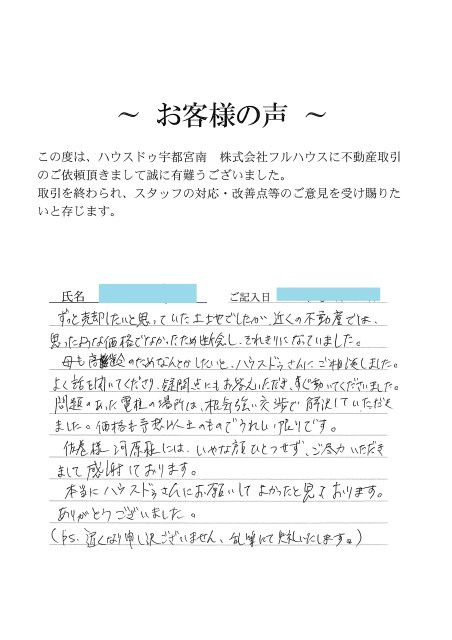 ～ お客様の声 ～
この度は、ハウスドゥ宇都宮南　株式会社フルハウスに不動産取引
のご依頼頂きまして誠に有難うございました。
取引を終わられ、スタッフの対応・改善点等のご意見を受け賜りた
いと存じます。
氏名
ご記入日
ずっと売却したいと思っていた土地でしたが、近くの不動産では、
思ったような価格でなかったため断念し、それきりになっていました。
母も高齢のためなんとかしたいと、ハウスドゥさんにご相談しました。
よく話を聞いてくださり、疑問点にもお答えいただき、すぐ動いてくださいました。
問題のあった電柱の場所は、根気強い交渉で解決していただき
ました。価格も予想以上のものでうれしい限りです。
佐巻様、河原様には、いやな顔ひとつせず、ご尽力いただき
まして感謝しております。
本当にハウスドゥさんにお願いしてよかったと思っております。
ありがとうございました。
(P.S. 遅くなり申し訳ございません、乱筆にて失礼いたします。)